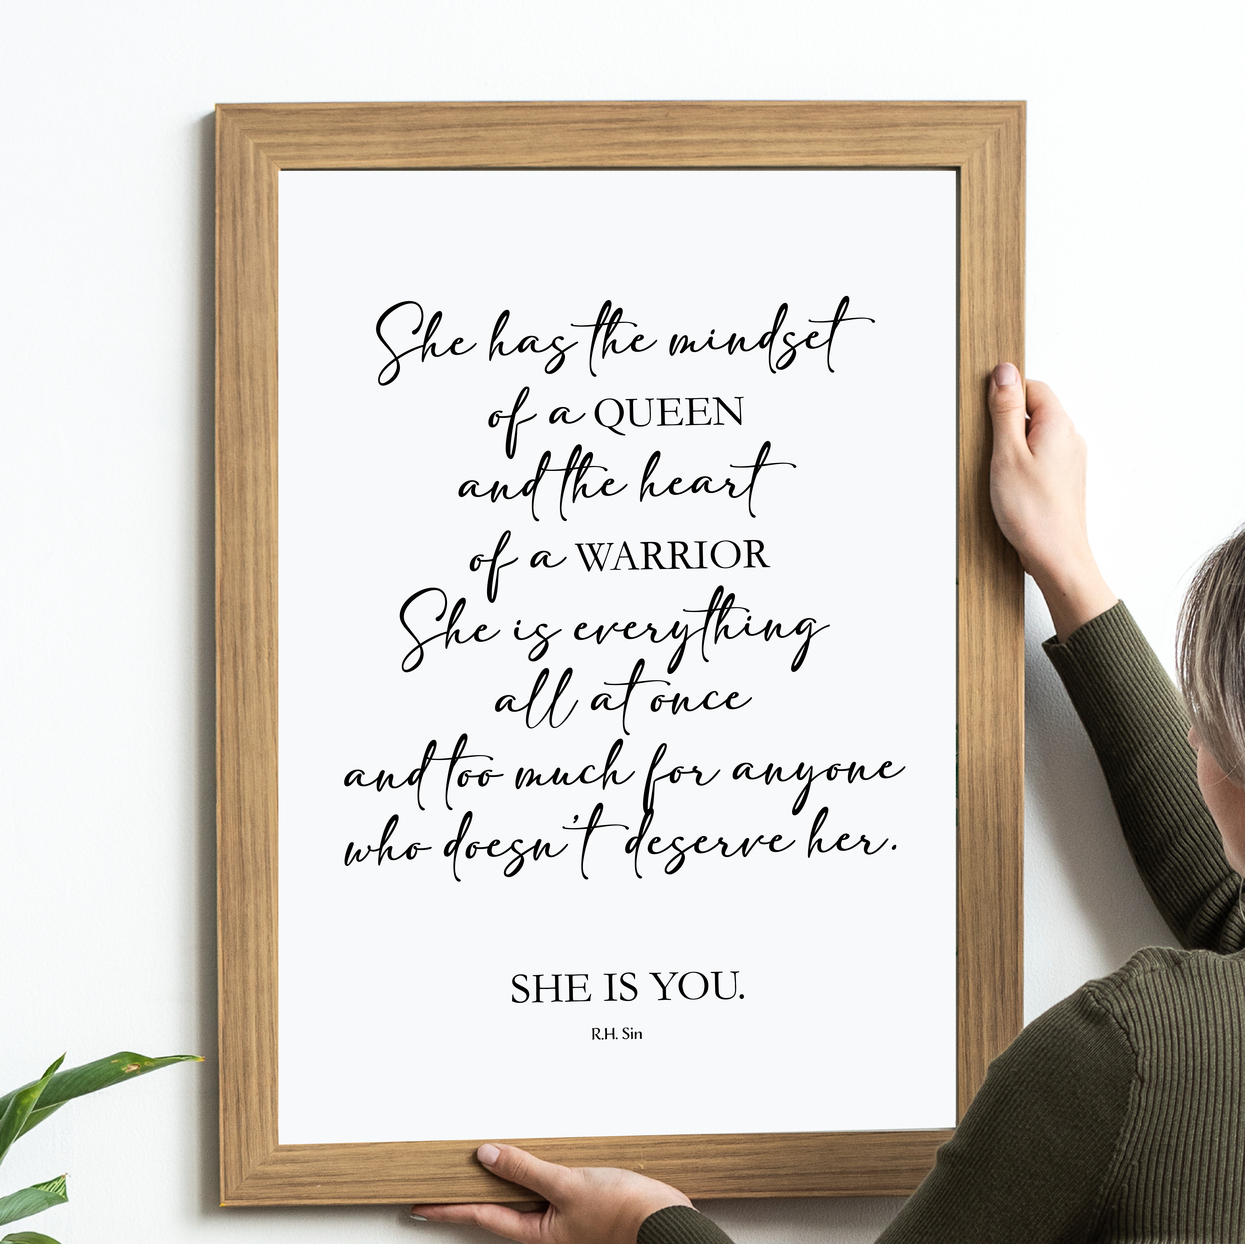 She has the mindset
of a QUEEN
and the heart
of a WARRIOR
She is everything
all at once
and too much for anyone
who doesn't deserve her.
SHE IS YOU.
R.H. Sin